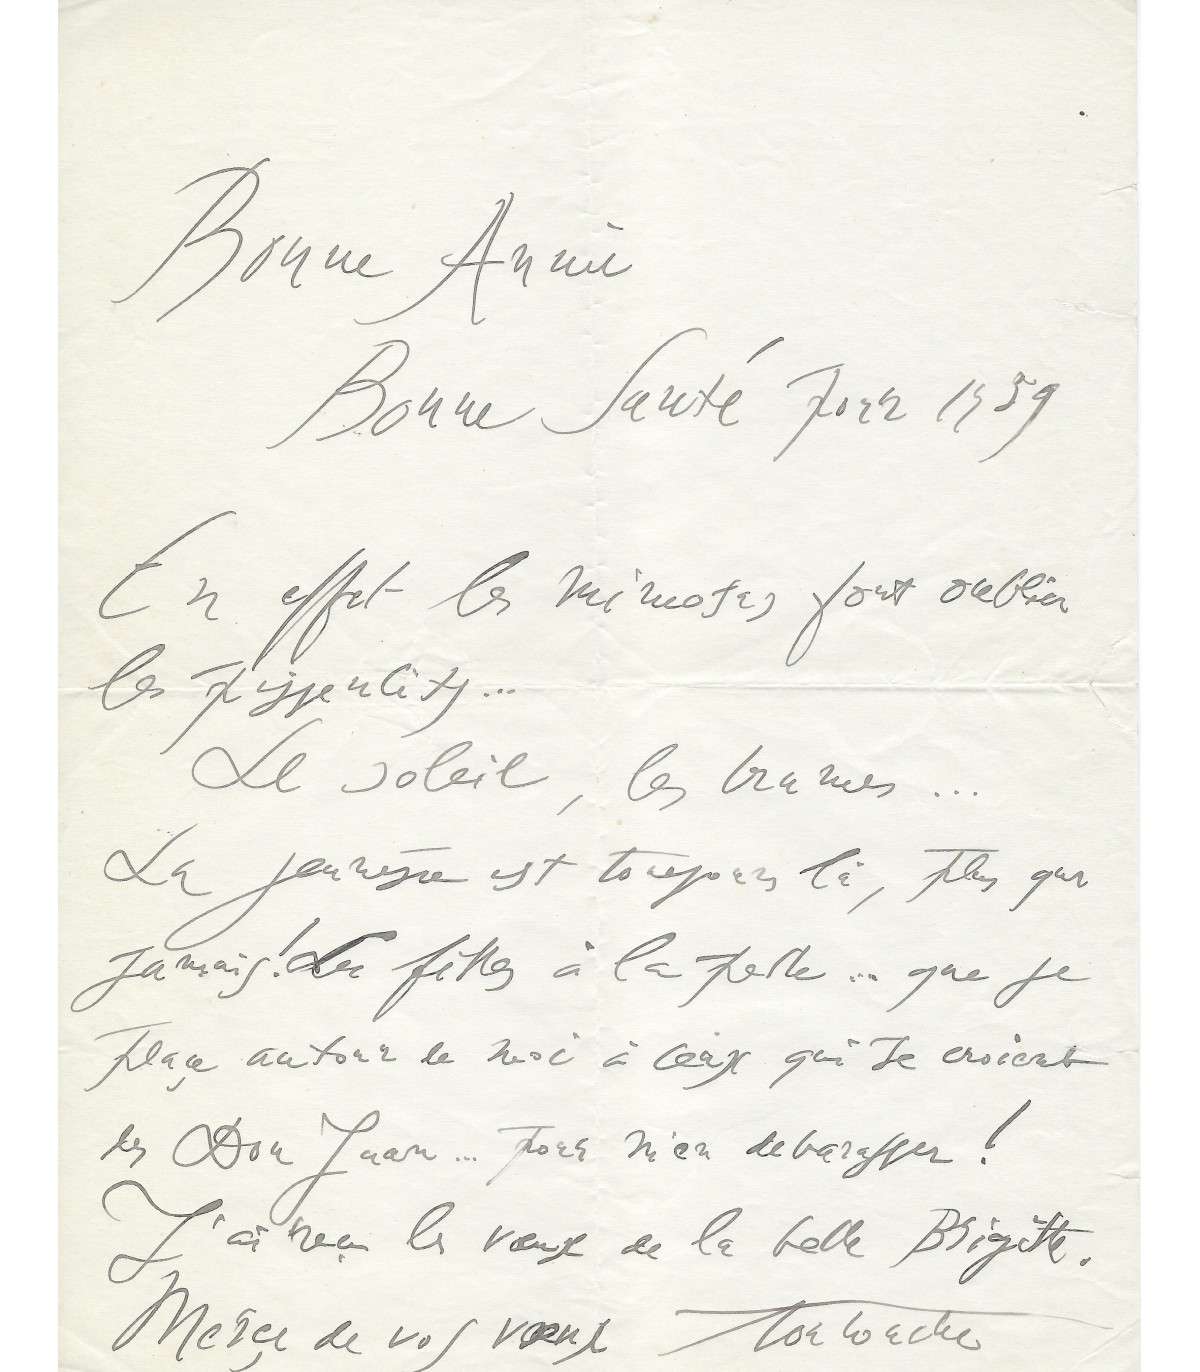 Bonne Année
Bonne Santé pour 1959
En effet les mimosas font oublier
les pissenlits...
Le soleil, les brunes...
La jeunesse est toujours là, plus que
jamais! Les filles à la pelle... que je
place autour de moi à ceux qui se croient
des Don Juan... pour m'en debarasser!
J'ai reçu les vœux de la belle Brigitte.
Merçi de vos vœux